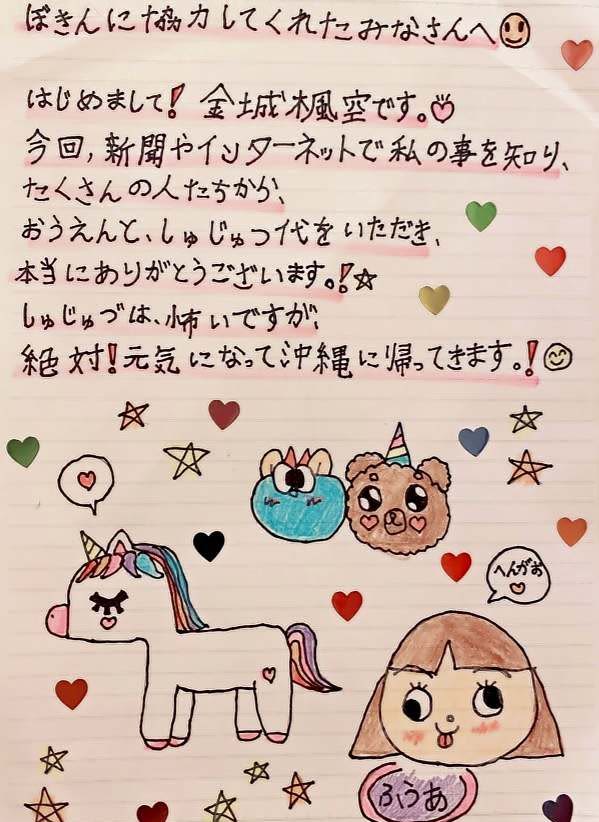 ぼきんに協力してくれたみなさんへ
はじめまして!金城楓空です。
今回,新聞やインターネットで私の事を知り、
たくさんの人たちから、
おうえんと、しゅじゅつ代をいただき、
本当にありがとうございます。!
しゅじゅつは、怖いですが、
絶対!元気になって沖縄に帰ってきます。!
へんがお
ふうあ